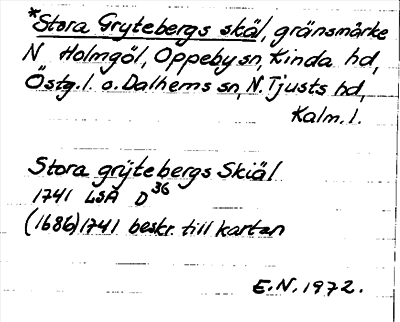 *Stora Grytebergs skäl, gränsmärke
N Holmgöl, Oppeby sn, Kinda hd,
Östg.l. o. Dalhems sn, N. Tjusts hd,
Kalm. l.
Stora grÿtebergs Skiäl
1741 LSA D 36
(1686) 1741 beskr. till kartan
E.N. 1972.